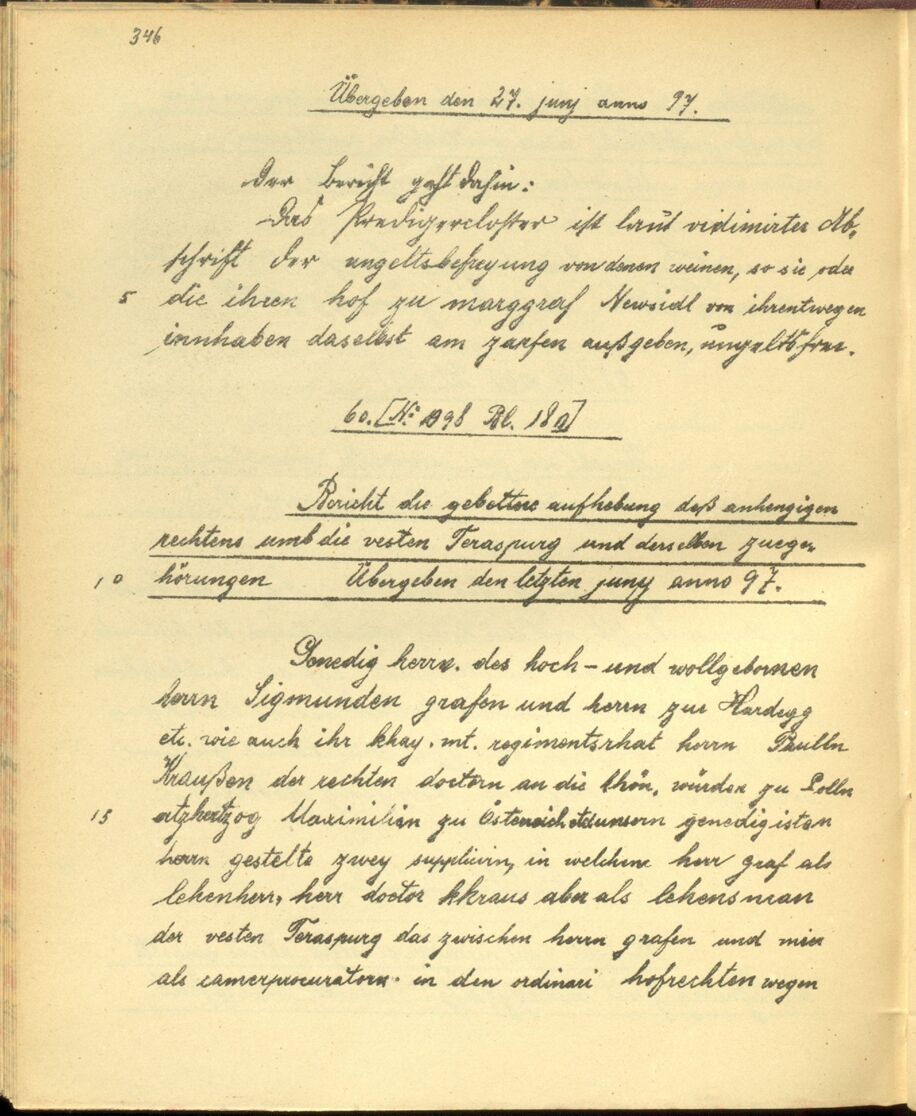 346
Übergeben den 27. junj anno 97.
Der bericht geht dahin:
Das Predigercloster ist laut vidimirter Ab-
schrift der ungeltsbefreyung von denen weinen, so sie oder
5 die ihren hof zu marggraf Newsidl von ihrentwegen
innhaben daselbst am zapfen außgeben, ungeltsfrei.
60. [No 1098 Bl. 18a]
Bericht die gebettene aufhebung deß anhengigen
rechtens umb die vesten Teraspurg und derselben zuege-
10 hörungen Übergeben den letzten junÿ anno 97.
Genedig herrn. des hoch- und wollgebornen
herrn Sigmunden grafen und herrn zur Hardegg
etc. wie auch ihr khay. mt. regimentsrhat herrn Paulln
Kraußen der rechten doctorn an die khön. würden zu Polln
15 ertzhertzog Maximilian zu Östenreich etc. unsern genedigisten
herrn gestelte zwey supplicirn, in welchen herr graf als
lehenherr, herr doctor kkraus aber als lehensman
der vesten Teraspurg das zwischen herrn grafen und mier
als camerprocuratorn in den ordinari hofrechten wegen